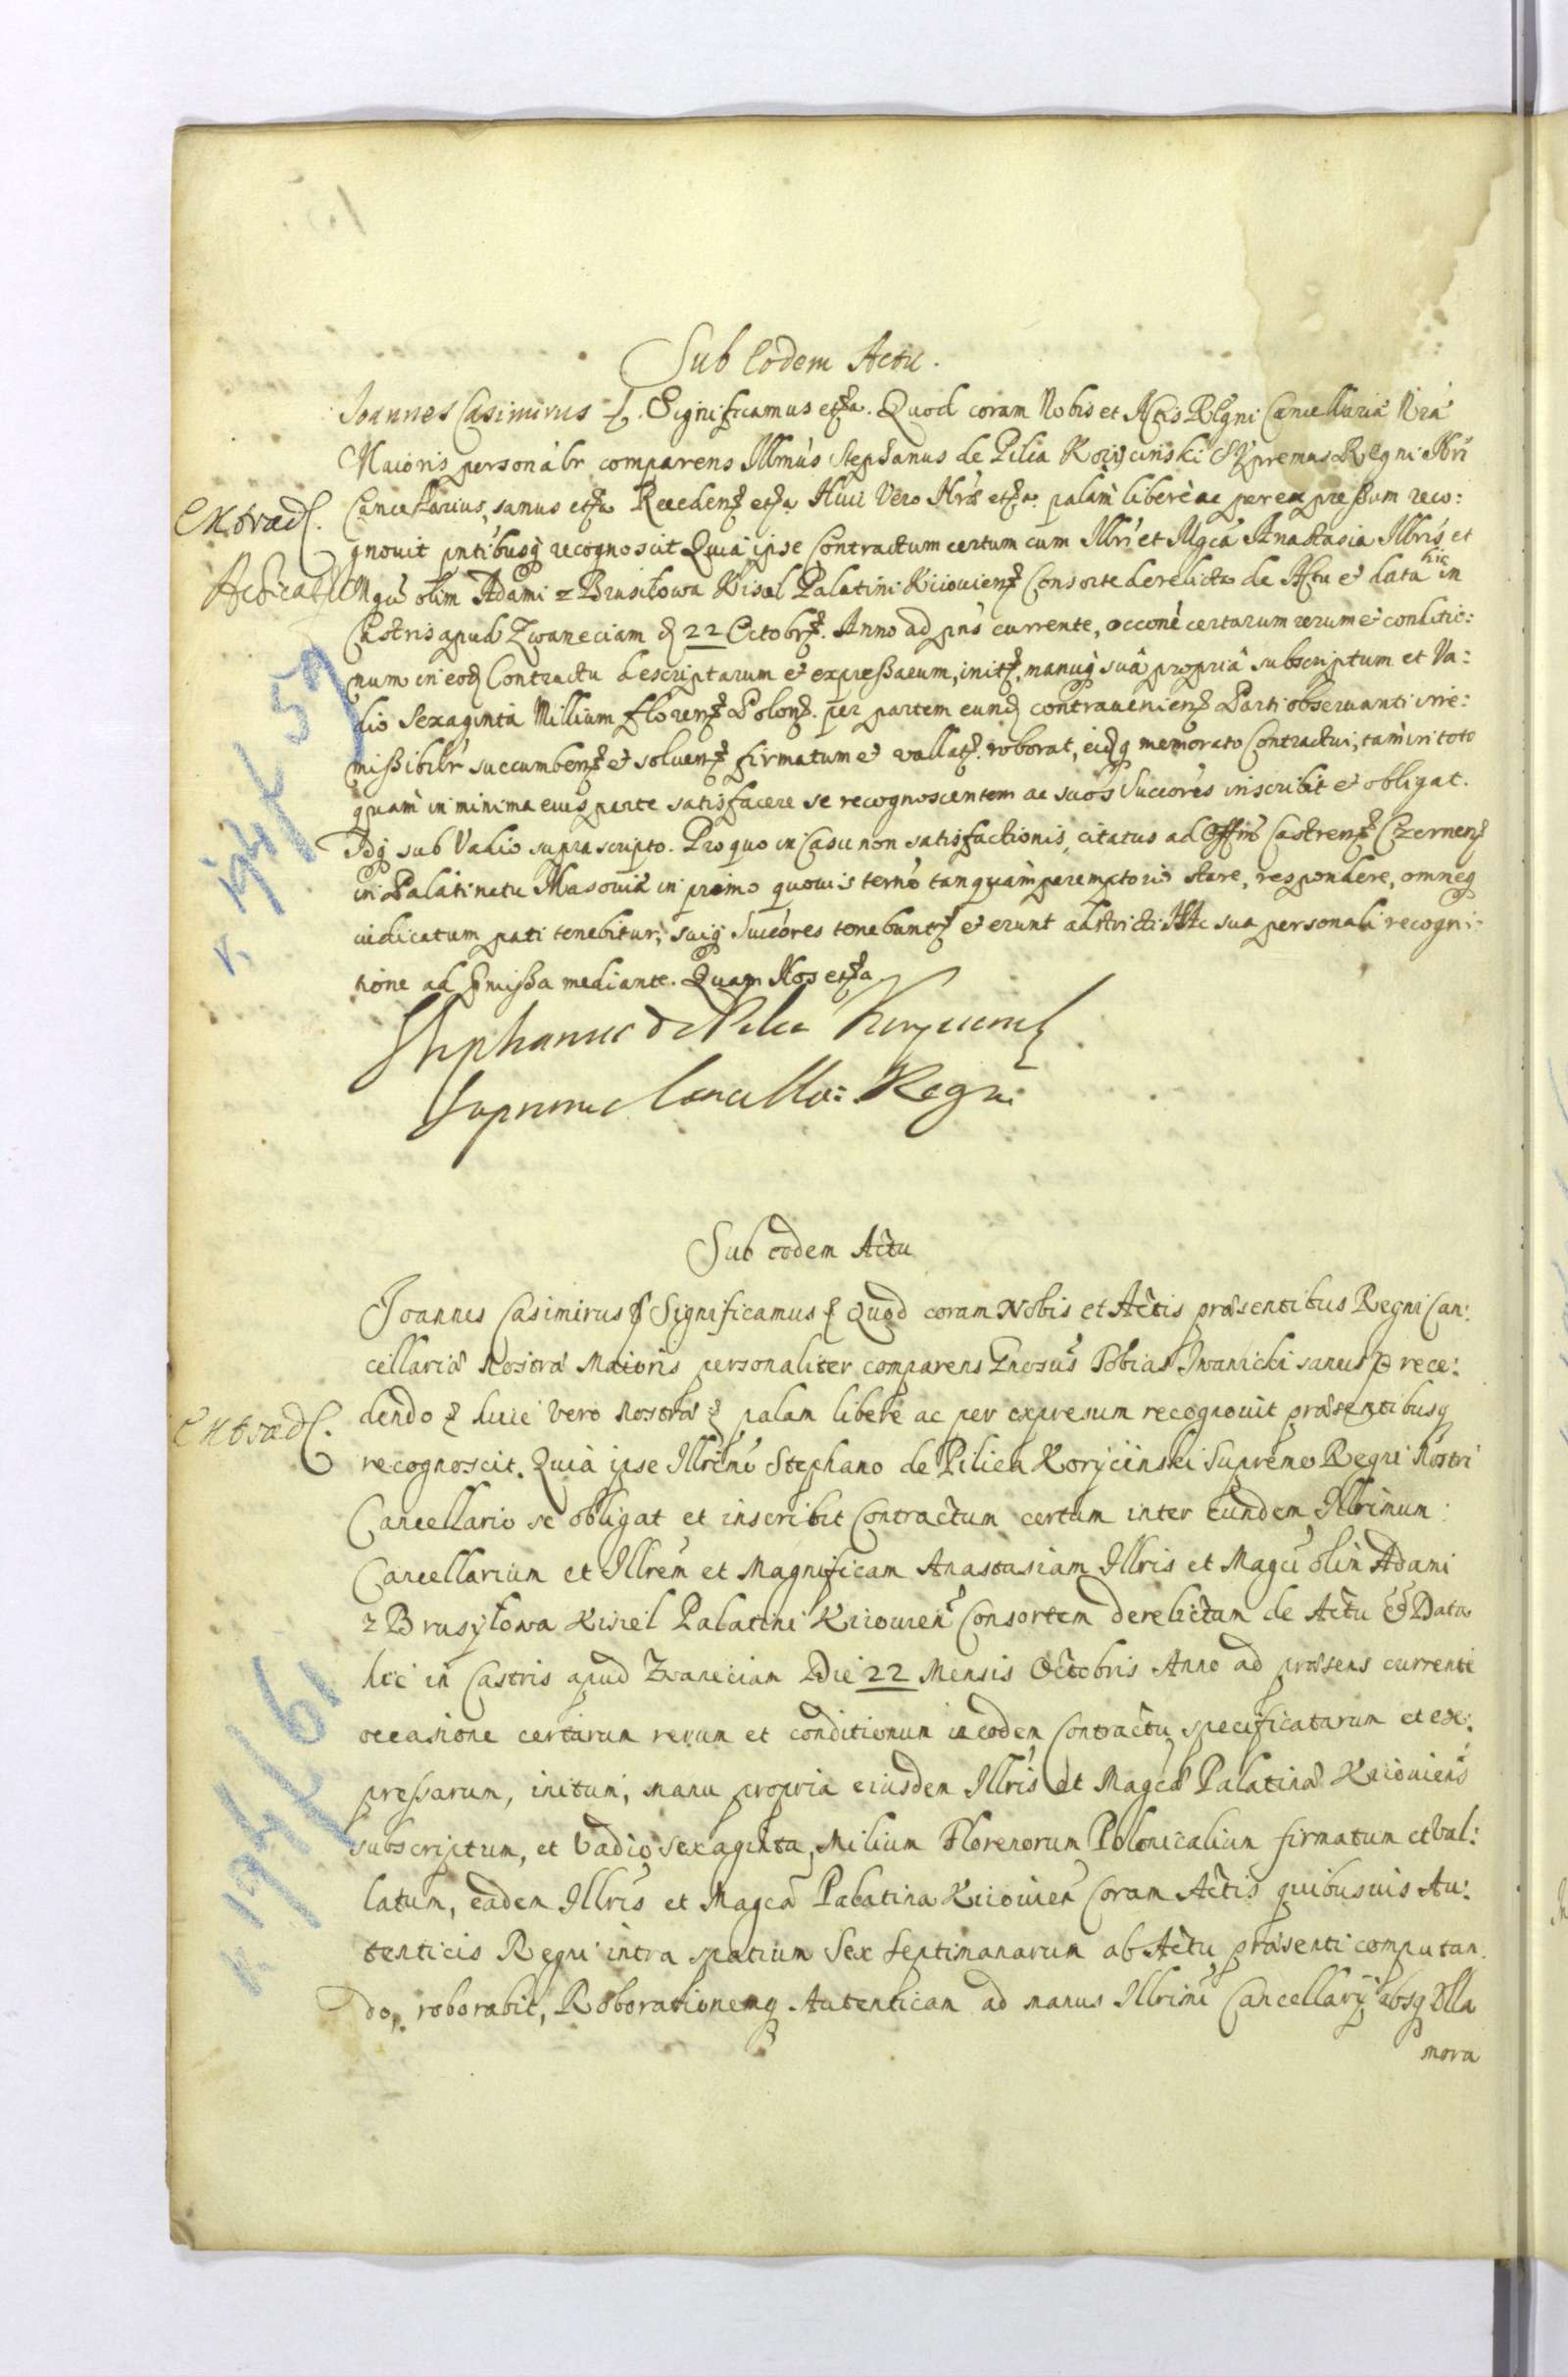 Sub Eodem Actu.
Joannes Casimirus etc. Significamus etca. Quod coram Nobis et Actis Regni Cancellariæ Nræ
Maioris personalr comparens Illmus Stephanus de Pilia Koryciński Supremus Regni Nri
Extrad.
Cancellarius, sanus etca Recedens etca Huic Vero Nræ etca. palam liberè ac per expressum reco:
gnouit pntibusq recognoscit Quia ipse Contractum certum cum Illri et Mgca Anastasia Illris et
Mgci olim Adami z Brusiłowa Kisiel Palatini Kiiouiens Consorte derelicta de Actu et data hic in
Castris apud Zwaneciam d 22 Octobr. Anno ad pns currente, occone certarum rerum et conditio:
num in eod Contractu descriptarum et expressarum, init, manuq suâ propriâ subscriptum et Va:
dio Sexaginta Millium floren Polon. per partem eund contrauenien Parti obseruanti irre:
missibilr succumben et soluen firmatum et vallat. roborat, eidq memorato Contractui, tam in toto
quam in minima eius parte satisfacere se recognoscentem ac suos Succores inscribit et obligat.
Idq sub Vadio suprascripto. Pro quo in Casu non satisfactionis, citatus ad Offm Castren Czernen
in Palatinatu Masouiæ in primo quouis termo tanquam peremptorio stare, respondere, omneq
iudicatum pati tenebitur, suiq Succores tenebunt et erunt adstricti Hac sua personali recogni:
tione ad pmissa mediante. Quam Nos etca
Stephanus de Pilca Koryciński
Supremus Cancella: Regni
Sub eodem Actu
Joannes Casimirus Significamus Quod coram Nobis et Actis præsentibus Regni Can:
cellariæ Nostræ Maioris personaliter comparens Gnosus Tobias Iwanicki sanus rece:
Extrad.
dendo huic vero Nostræ palam liberè ac per expresum recognouit præsentibusq
recognoscit. Quia ipse Illrimo Stephano de Pilica Koryciński Supremo Regni Nostri
Cancellario se obligat et inscribit Contractum certum inter Eundem Illrimum
Cancellarium et Illrem et Magnificam Anastasiam Illris et Magci olim Adami
z Brusyłowa Kisiel Palatini Kiiouien Consortem derelictam de Actu et Data
hic in Castris apud Zwaneciam Die 22 Mensis Octobris Anno ad præsens currente
occasione certarum rerum et conditionum in eodem Contractu specificatarum et ex:
pressarum, initum, manu propria eiusdem Illris et Magcæ Palatinæ Kiiouiens
subscriptum, et Vadio sexaginta Milium Florenorum Polonicalium firmatum et val:
latum, eadem Illris et Magca Palatina Kiiouien Coram Actis quibusuis Au:
tenticis Regni intra spatium Sex Septimanarum ab Actu præsenti computan
do, roborabit, Roborationemq Autenticam ad manus Illrimi Cancellarij absq Vlla
mora